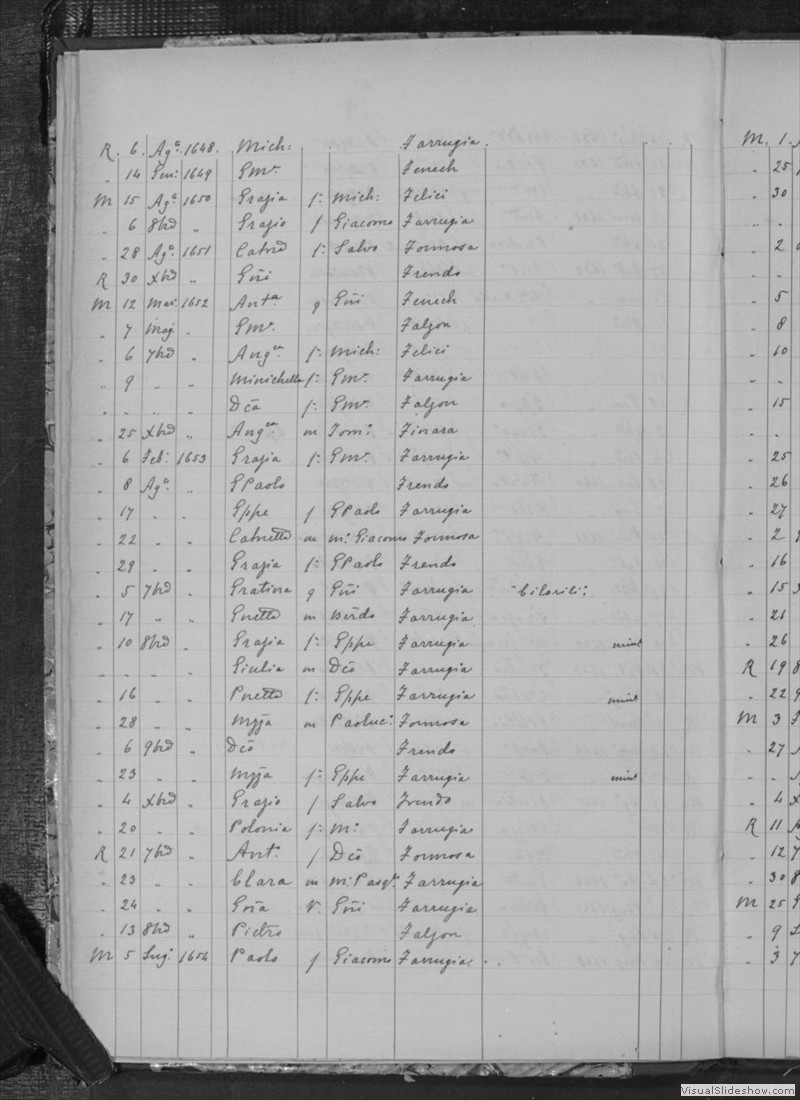 R. 6. Agᵒ. 1648. Mich: Farrugia.
. 14 Gen: 1649 Gmʳ. Fenech
M 15 Agᵒ. 1650 Grazia f: Mich: Felici
. 6 8brẽ „ Grazio f Giacomo Farrugia
. 28 Agᵒ. 1651 Catnẽ f: Salvo Formosa
R 30 Xbrẽ „ Gñi Frendo
M 12 Mar. 1652 Antᵃ q Gñi Fenech
. 7 Mag. „ Gmʳ. Falzon
. 6 7brẽ „ Angᶜᵃ f: Mich: Felici
„ 9 . „ Minichella f: Gmʳ. Farrugia
. . . „ Dcã f: Gmʳ. Falzon
. 25 Xbrẽ „ Angᶜᵃ m Tom: Zinara
. 6 Feb: 1653 Grazia f: Gmʳ. Farrugia
. 8 Agᵒ. „ GPaolo Frendo
. 17 . . Gppe f GPaolo Farrugia
. 22 . „ Catnettã m mᵒ: Giacomo Formosa
. 29 . . Grazia f: GPaolo Frendo
. 5 7brẽ . Gratina q Gñi Farrugia "Cilorili":
. 17 „ „ Gnettã m Bẽrdo Farrugia
. 10 8brẽ . Grazia f: Gppe Farrugia mint
. . . . Giulia m Dcõ Farrugia
. 16 . . Pnettã f: Gppe Farrugia mint
. 28 . . Mzja m Paoluc: Formosa
. 6 9brẽ . Dcõ Frendo
. 23 . . Mzja f: Gppe Farrugia mint
. 4 Xbrẽ . Grazio f Salvo Frendo
. 20 . . Polonia f: Mᵒ: Farrugia
R 21 7brẽ . Antᵒ. f Dcõ Formosa
. 23 . „ Clara m mᵒ: Pasqˡᵉ. Farrugia
. 24 . . Gña V. Gñi Farrugia
. 13 8brẽ „ Pietro Falzon
M 5 Lug: 1654 Paolo f Giacomo Farrugia.
M. 1.
. 25
. 30
. .
. 2
. .
. 5
. 8
. 10
. .
. 15
. .
. 25
. 26
. 27
. 2
. 16
. 15
. 21
. 26
R 19
. 22
M 3
. 27
. .
. 4
R 11
. 12
. 30
M 25
. 9
. 3
VisualSlideshow.com